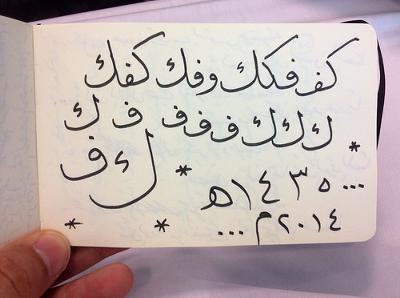 كفر فكك وفك كفك
ك ك ك ف ف ف ف ك
*
ك ف
*
... ١٤٣٥ هـ
٢٠١٤ م ...
* *